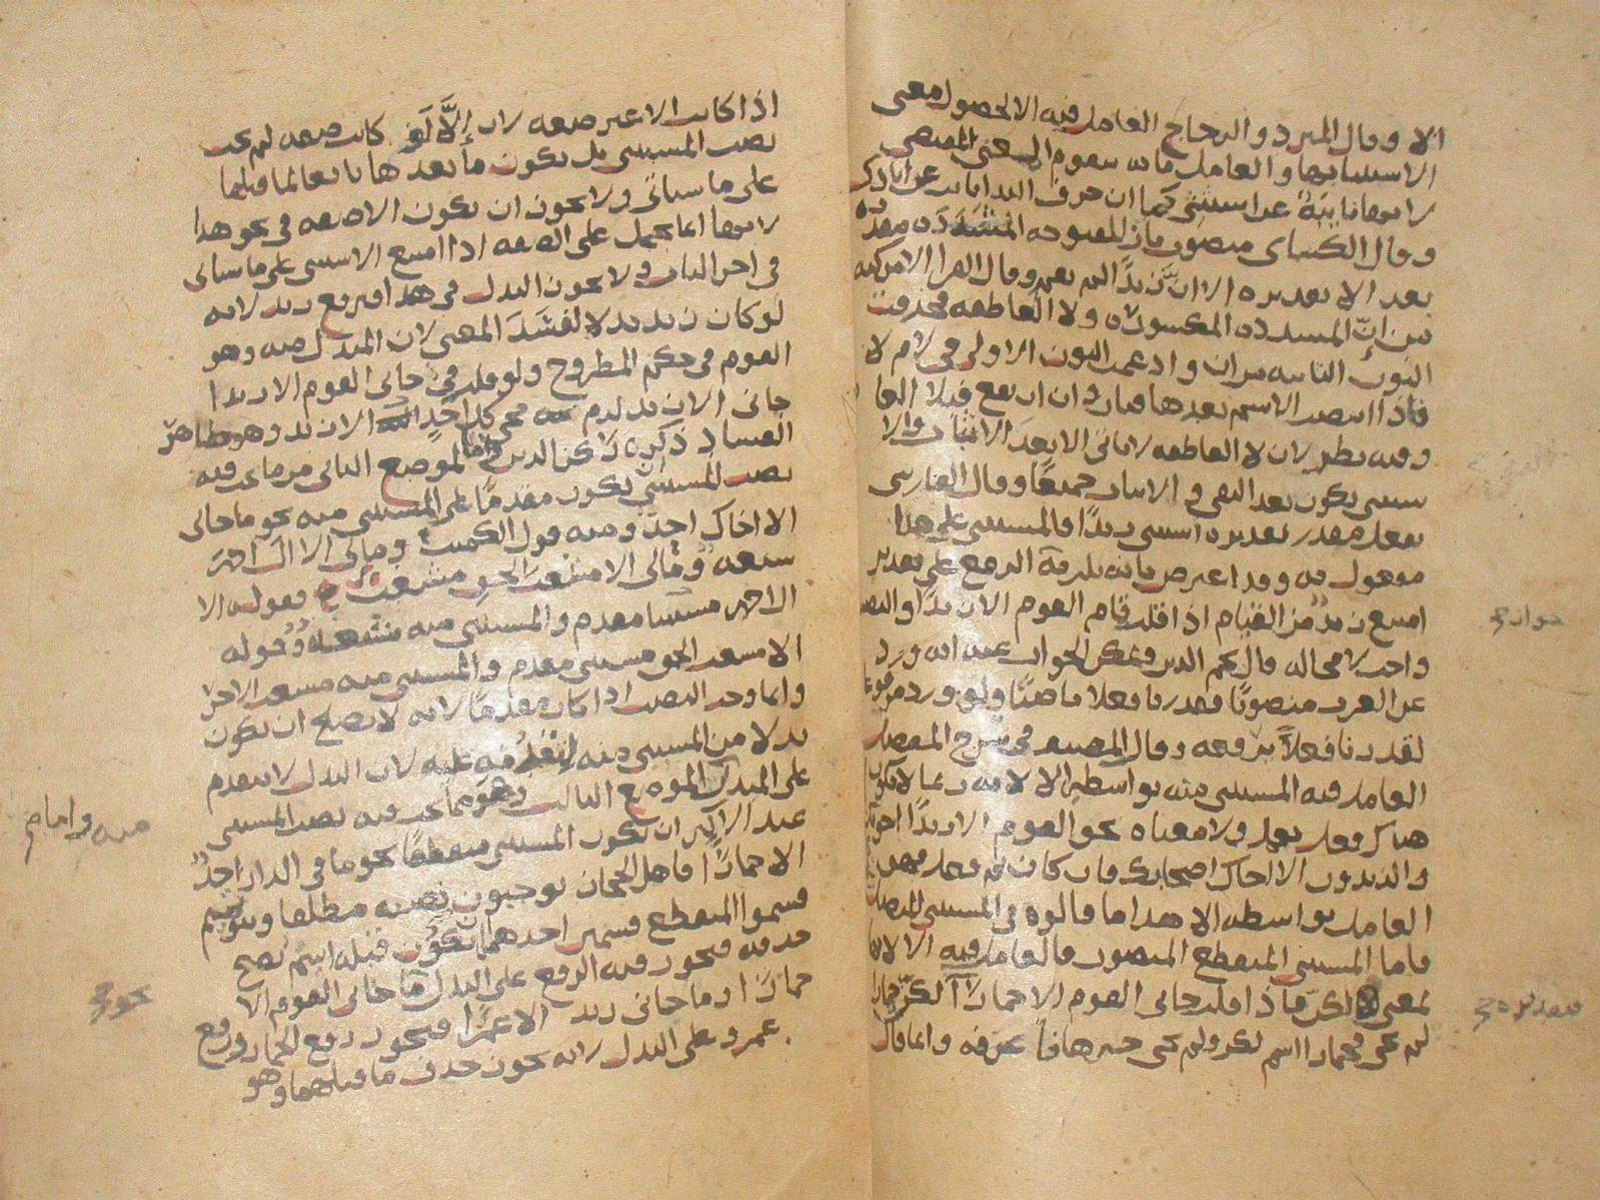 الا وقال المبرد والزجاج العامل فيه الا لحصول معنى
الاستثناء بها والعامل ما به يتقوم المعنى المقتضى
لانها نايبة عن استثنى كما ان حرف النداء نايب عن انادى
وقال الكسائى منصوب بان المفتوحة المشددة مقدرة
بعد الا تقديره الا ان زيدًا لم يقم وقال الفرا الا مركبة
من إنّ المشددة المكسورة ولا العاطفة فحذفت
النون الثانية من ان وادغمت النون الاولى فى لام لا
فاذا انتصب الاسم بعدها فبان وان ارتفع فبلا العا
وفيه نظر لان لا العاطفة لا تاتى الا بعد الاثبات والا
ستثنى يكون بعد النفى والاثبات جميعًا وقال الفارسى
بفعل مقدر تقديره استثنى زيدًا فالمستثنى على هذا
مفعول به وقد اعترض بانه يلزمه الرفع على تقدير
امتنع زيدٌ من القيام اذا قلت قام القوم الا زيدًا والنصب
واحد لا محالة قال نجم الدين ويمكن الجواب عنه انه ورد
عن العرب منصوبًا فقدرنا فعلا ناصبًا ولو ورد مرفوعا
لقدرنا فعلاً يرفعه وقال المصنف فى شرح المفصل
العامل فيه المستثنى منه بواسطة الا لانه ربما لا يكون
هناك فعل يعمل ولا معناه نحو القوم الا زيدًا اخوتك
والزيدون الا اخاك اصحابك فان كان ثم فعل فهو
العامل بواسطة الا هذا ما قالوه فى المستثنى المتصل
فاما المستثنى المنقطع المنصوب فالعامل فيه الا لانها
بمعنى لكنّ فاذا قلت جانى القوم الا حمارًا اى لكنّ حمارا
لم يجى فحمارا اسم لكن ولم يجى خبرها عرفه وانما قال
جوازه
تقديره
اذا كانت الا غير صفة لان إلَّا لَو كانت صفة لم يجب
نصب المستثنى بل يكون ما بعدها تابعا لما قبلها
على ما سياتى ولا يجوز ان يكون الا صفة فى نحو هذا
لانها انما تحمل على الصفة اذا امتنع الاستثنى على ما سياتى
فى اخر الباب ولا يجوز البدل فى هذا فيرفع زيد لانه
لو كان زيد بدلا لفسَدَ المعنى لان المبدل منه وهو
القوم فى حكم المطروح ولو قلت فى جانى القوم الا زيدا
جانى الا زيد لزم مجى كل احدٍ الا زيد وهو ظاهر
الفساد ذكره ركن الدين واما الموضع الثانى مما يجب فيه
نصب المستثنى يكون مقدمًا على المستثنى منه نحو ما جانى
الا اخاك احدٌ ومنه قول الكميت وما لى الا ال احمد
شيعة ومالى الا مشعب الحق مشعب فقوله الا
ال احمد مستثنا مقدم والمستثنى منه شيعة وقوله
الا مشعب الحق مستثنى مقدم والمستثنى منه مشعب الاخر
وانما وجب النصب اذا كان مقدمًا لانه لا يصلح ان يكون
بدلا من المستثنى منه لتقدمه عليه لان البدل لا يتقدم
على المبدل الموضع الثالث وهو مما يجب فيه نصب المستثنى
عند الاكثر ان يكون المستثنى منقطعًا نحو ما فى الدار احدٌ
الا حمارًا فاهل الحجاز يوجبون نصبه مطلقا وبنو تميم
قسموا المنقطع قسمين احدهما ان يكون قبله اسمٌ يصح
حذفه فيجوز فيه الرفع على البدل ما جانى القوم الا
حمارًا او ما جانى زيد الا عمرًا فيجوز رفع الحمار ورفع
عمرو على البدل لانه يجوز حذف ما قبلهما وهو
منه واما
نحو